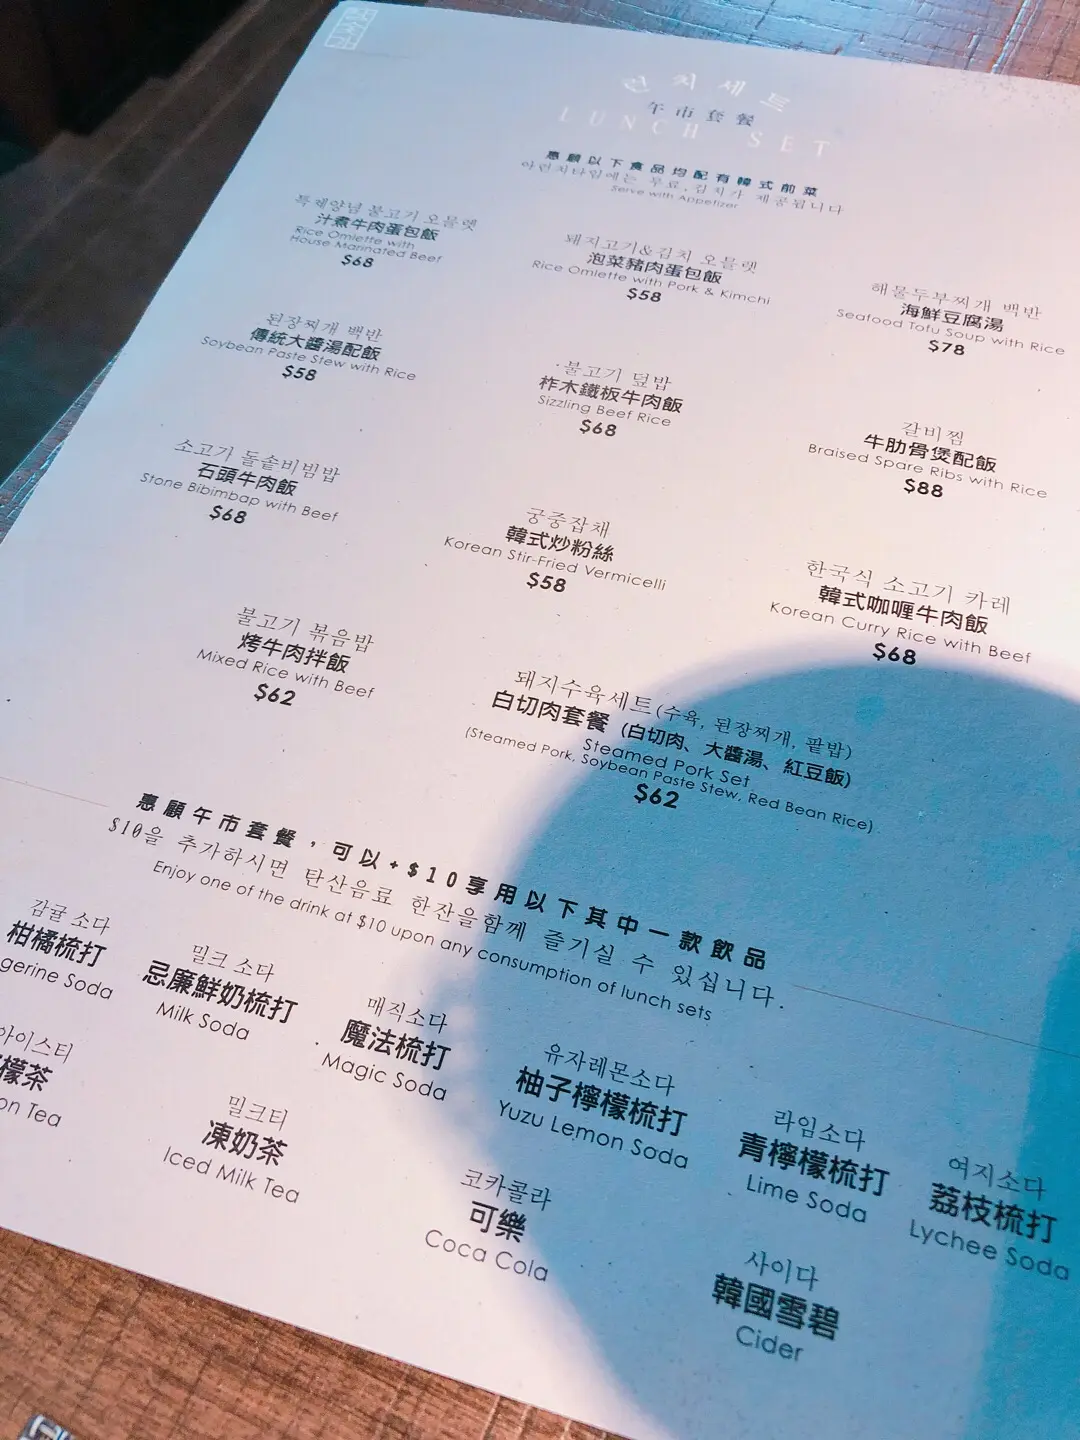 런치세트
午市套餐
LUNCH SET
惠顧以下食品均配有韓式前菜
Serve with Appetizer
특제양념 불고기 오믈렛
汁煮牛肉蛋包飯
Rice Omlette with
House Marinated Beef
$68
돼지고기&김치 오믈렛
泡菜豬肉蛋包飯
Rice Omlette with Pork & Kimchi
$58
해물두부찌개 백반
海鮮豆腐湯
Seafood Tofu Soup with Rice
$78
된장찌개 백반
傳統大醬湯配飯
Soybean Paste Stew with Rice
$58
불고기 덮밥
柞木鐵板牛肉飯
Sizzling Beef Rice
$68
갈비찜
牛肋骨煲配飯
Braised Spare Ribs with Rice
$88
소고기 돌솥비빔밥
石頭牛肉飯
Stone Bibimbap with Beef
$68
궁중잡채
韓式炒粉絲
Korean Stir-Fried Vermicelli
$58
한국식 소고기 카레
韓式咖喱牛肉飯
Korean Curry Rice with Beef
$68
불고기 볶음밥
烤牛肉拌飯
Mixed Rice with Beef
$62
돼지수육세트(수육, 된장찌개, 팥밥)
白切肉套餐 (白切肉、大醬湯、紅豆飯)
Steamed Pork Set
(Steamed Pork, Soybean Paste Stew, Red Bean Rice)
$62
惠顧午市套餐，可以+$10享用以下其中一款飲品
$10을 추가하시면 탄산음료 한잔을함께 즐기실 수 있십니다.
Enjoy one of the drink at $10 upon any consumption of lunch sets
감귤 소다
柑橘梳打
gerine Soda
밀크 소다
忌廉鮮奶梳打
Milk Soda
매직소다
魔法梳打
Magic Soda
유자레몬소다
柚子檸檬梳打
Yuzu Lemon Soda
라임소다
青檸檬梳打
Lime Soda
여지소다
荔枝梳打
Lychee Soda
아이스티
檬茶
on Tea
밀크티
凍奶茶
Iced Milk Tea
코카콜라
可樂
Coca Cola
사이다
韓國雪碧
Cider